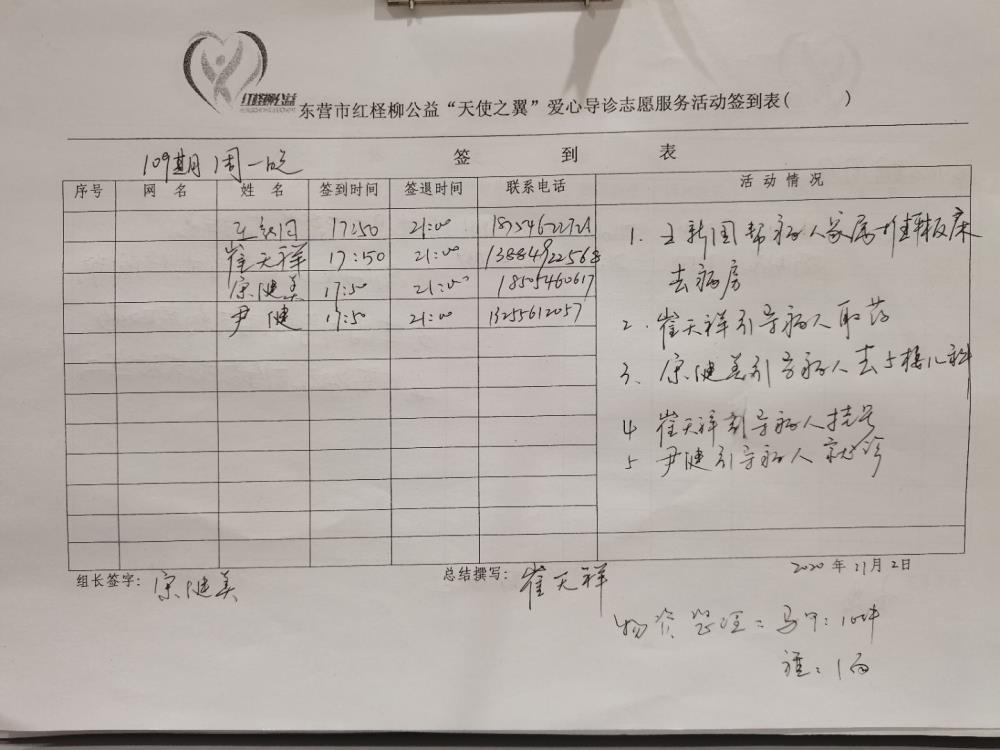 红柽柳公益
东营市红柽柳公益“天使之翼”爱心导诊志愿服务活动签到表( )
109期 周一晚 签 到 表
序号 网 名 姓 名 签到时间 签退时间 联系电话 活 动 情 况
17:50 21:00
崔天祥 17:50 21:00 13884922568
宗健美 17:50 21:00 18505460617
尹 健 17:50 21:00 13255612057
1. 王新国帮病人家属推平板床
去病房
2. 崔天祥引导病人取药
3. 宗健美引导病人去5楼儿科
4 崔天祥引导病人挂号
5 尹健引导病人就诊
组长签字: 宗健美 总结撰写: 崔天祥 2020 年 11 月 2 日
物资整理: 马甲: 10件